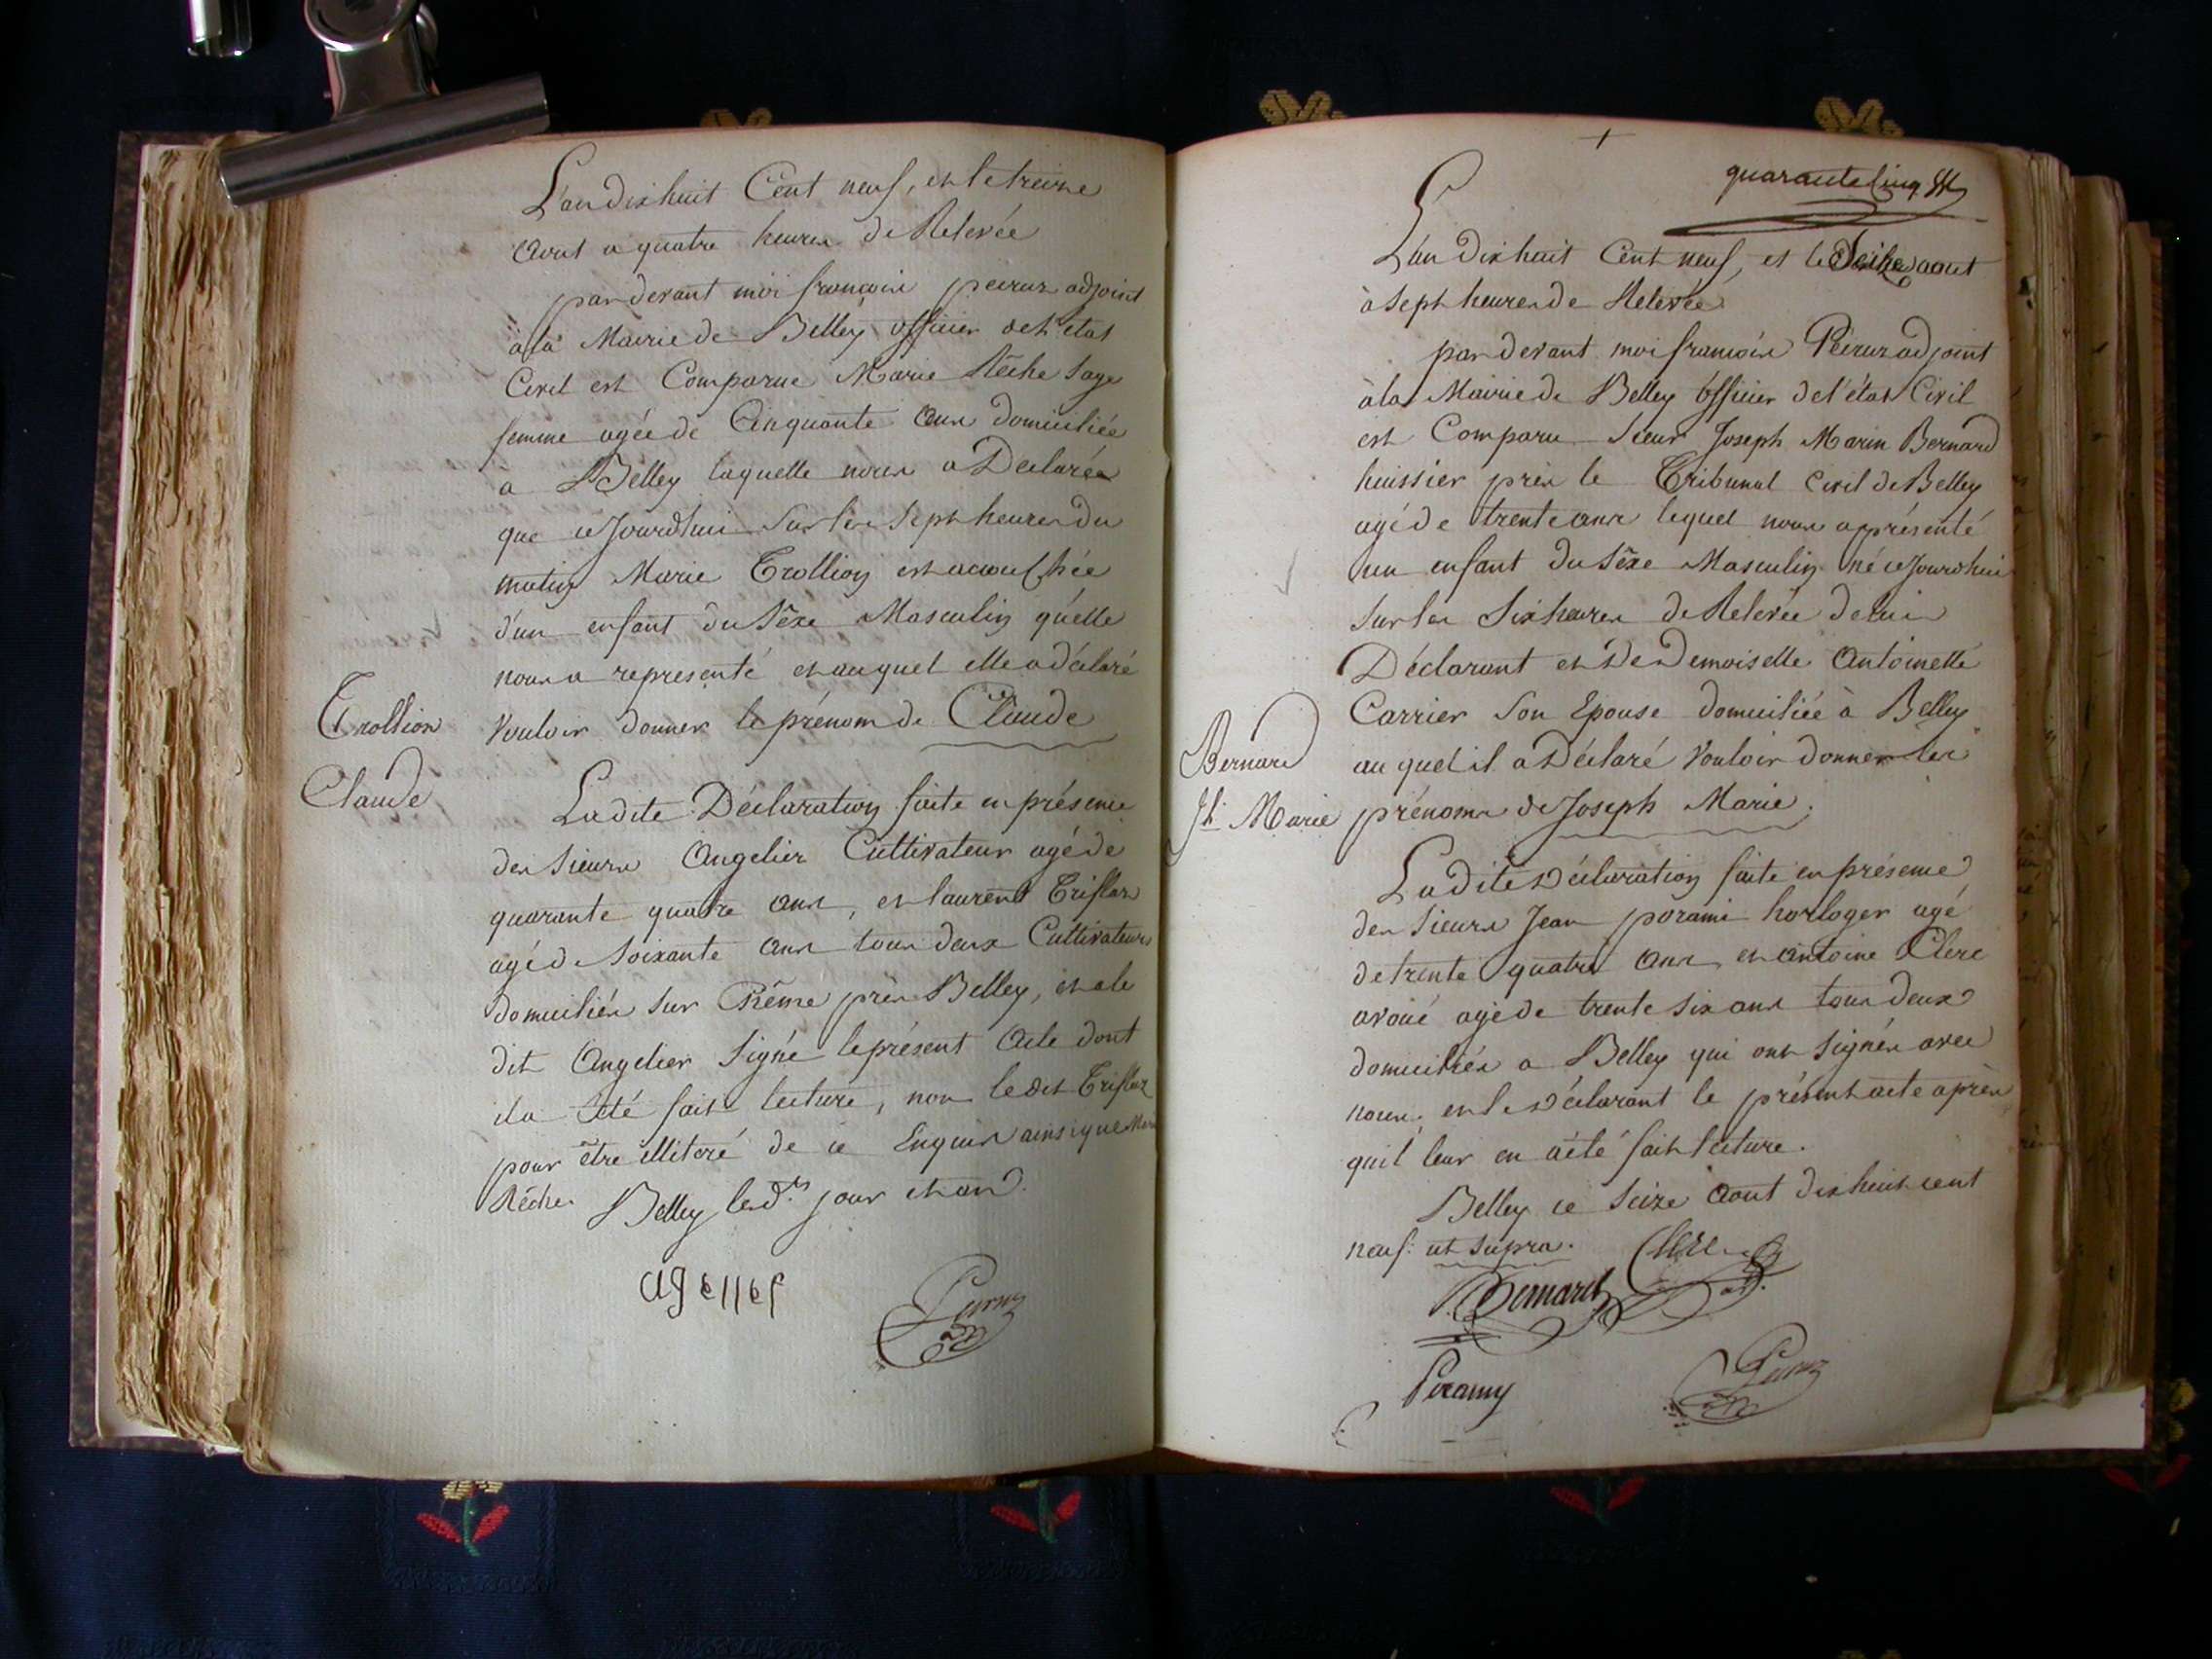 L'an dix huit Cent neuf, et le treize
Aout a quatre heures de Relevée
par devant moi françois peiruz adjoint
à la Mairie de Belley officier de l'état
Civil est Comparue Marie Rêche Sage
femme agée de Cinquante Ans domiciliée
a Belley laquelle nous a Declarée
que ce Jourdhui Sur les Sept heures du
matin Marie Trollion est acouchée
d'un enfant du Sêxe Masculin qu'elle
nous a representé et auquel elle a déclaré
Vouloir donner le prénom de Claude
Trollion
Claude
La dite Déclaration faite en présence
des Sieurs Angelier Cultivateur agé de
quarante quatre ans, et laurent
agé de Soixante Ans tous deux Cultivateurs
domiciliés Sur près Belley, et a le
dit Angelier Signé le présent Acte dont
il a été fait lecture, non le dit
pour être illiteré de ce Enquis ainsi que
Rêche. Belley les d.ts jour et an.
agellier
Peiruz
quarante Cinq
L'an Dix huit Cent neuf, et le Seize aout
à Sept heures de Relevée
par devant moi françois Peiruz adjoint
à la Mairie de Belley officier de l'état Civil
est Comparu Sieur Joseph Marin Bernard
huissier près le Tribunal Civil de Belley
agé de trente ans lequel nous a présenté
un enfant du Sêxe Masculin né ce Jourdhui
Sur les Six heures de Relevée de lui
Déclarant et De Demoiselle Antoinette
Carrier Son Epouse domiciliée à Belley
au quel il a Déclaré Vouloir donner les
prénoms de Joseph Marie.
Bernard
Jh. Marie
La dite Déclaration faite en présence
des Sieurs Jean porami horloger agé
de trente quatre Ans et Antoine Clerc
avoué agé de trente Six ans tous deux
domiciliés a Belley qui ont Signés avec
nous, et le Déclarant le présent acte après
qu'il leur en a été fait lecture.
Belley ce Seize Aout dix huit cent
neuf. ut Supra. Clerc
Bernard
Peiruz